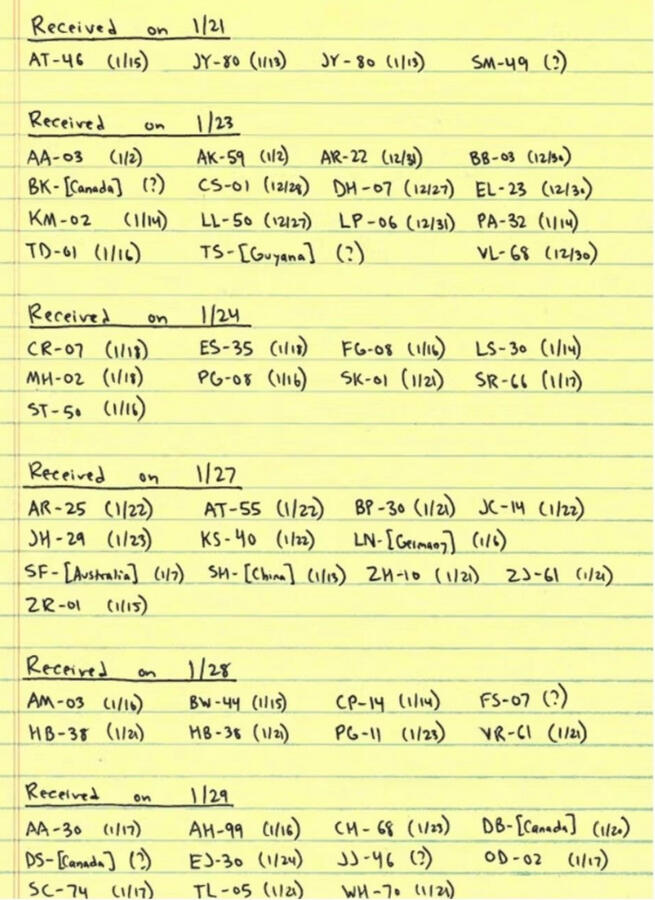 Received on 1/21
AT-46 (1/15) JY-80 (1/13) JY-80 (1/13) SM-49 (?)
Received on 1/23
AA-03 (1/2) AK-59 (1/2) AR-22 (12/31) BB-03 (12/30)
BK-[Canada] (?) CS-01 (12/28) DH-07 (12/27) EL-23 (12/30)
KM-02 (1/14) LL-50 (12/27) LP-06 (12/31) PA-32 (1/14)
TD-61 (1/16) TS-[Guyana] (?) VL-68 (12/30)
Received on 1/24
CR-07 (1/18) ES-35 (1/18) FG-08 (1/16) LS-30 (1/14)
MH-02 (1/18) PG-08 (1/16) SK-01 (1/21) SR-66 (1/17)
ST-50 (1/16)
Received on 1/27
AR-25 (1/22) AT-55 (1/22) BP-30 (1/21) JC-14 (1/22)
JH-29 (1/23) KS-40 (1/22) LN-[Germany] (1/6)
SF-[Australia] (1/7) SH-[China] (1/13) ZH-10 (1/21) ZJ-61 (1/21)
ZR-01 (1/15)
Received on 1/28
AM-03 (1/16) BW-44 (1/15) CP-14 (1/14) FS-07 (?)
HB-38 (1/21) HB-38 (1/21) PG-11 (1/23) VR-61 (1/21)
Received on 1/29
AA-30 (1/17) AH-99 (1/16) CH-68 (1/23) DB-[Canada] (1/20)
DS-[Canada] (?) EJ-30 (1/24) JJ-46 (?) OD-02 (1/17)
SC-74 (1/17) TL-05 (1/21) WH-70 (1/21)